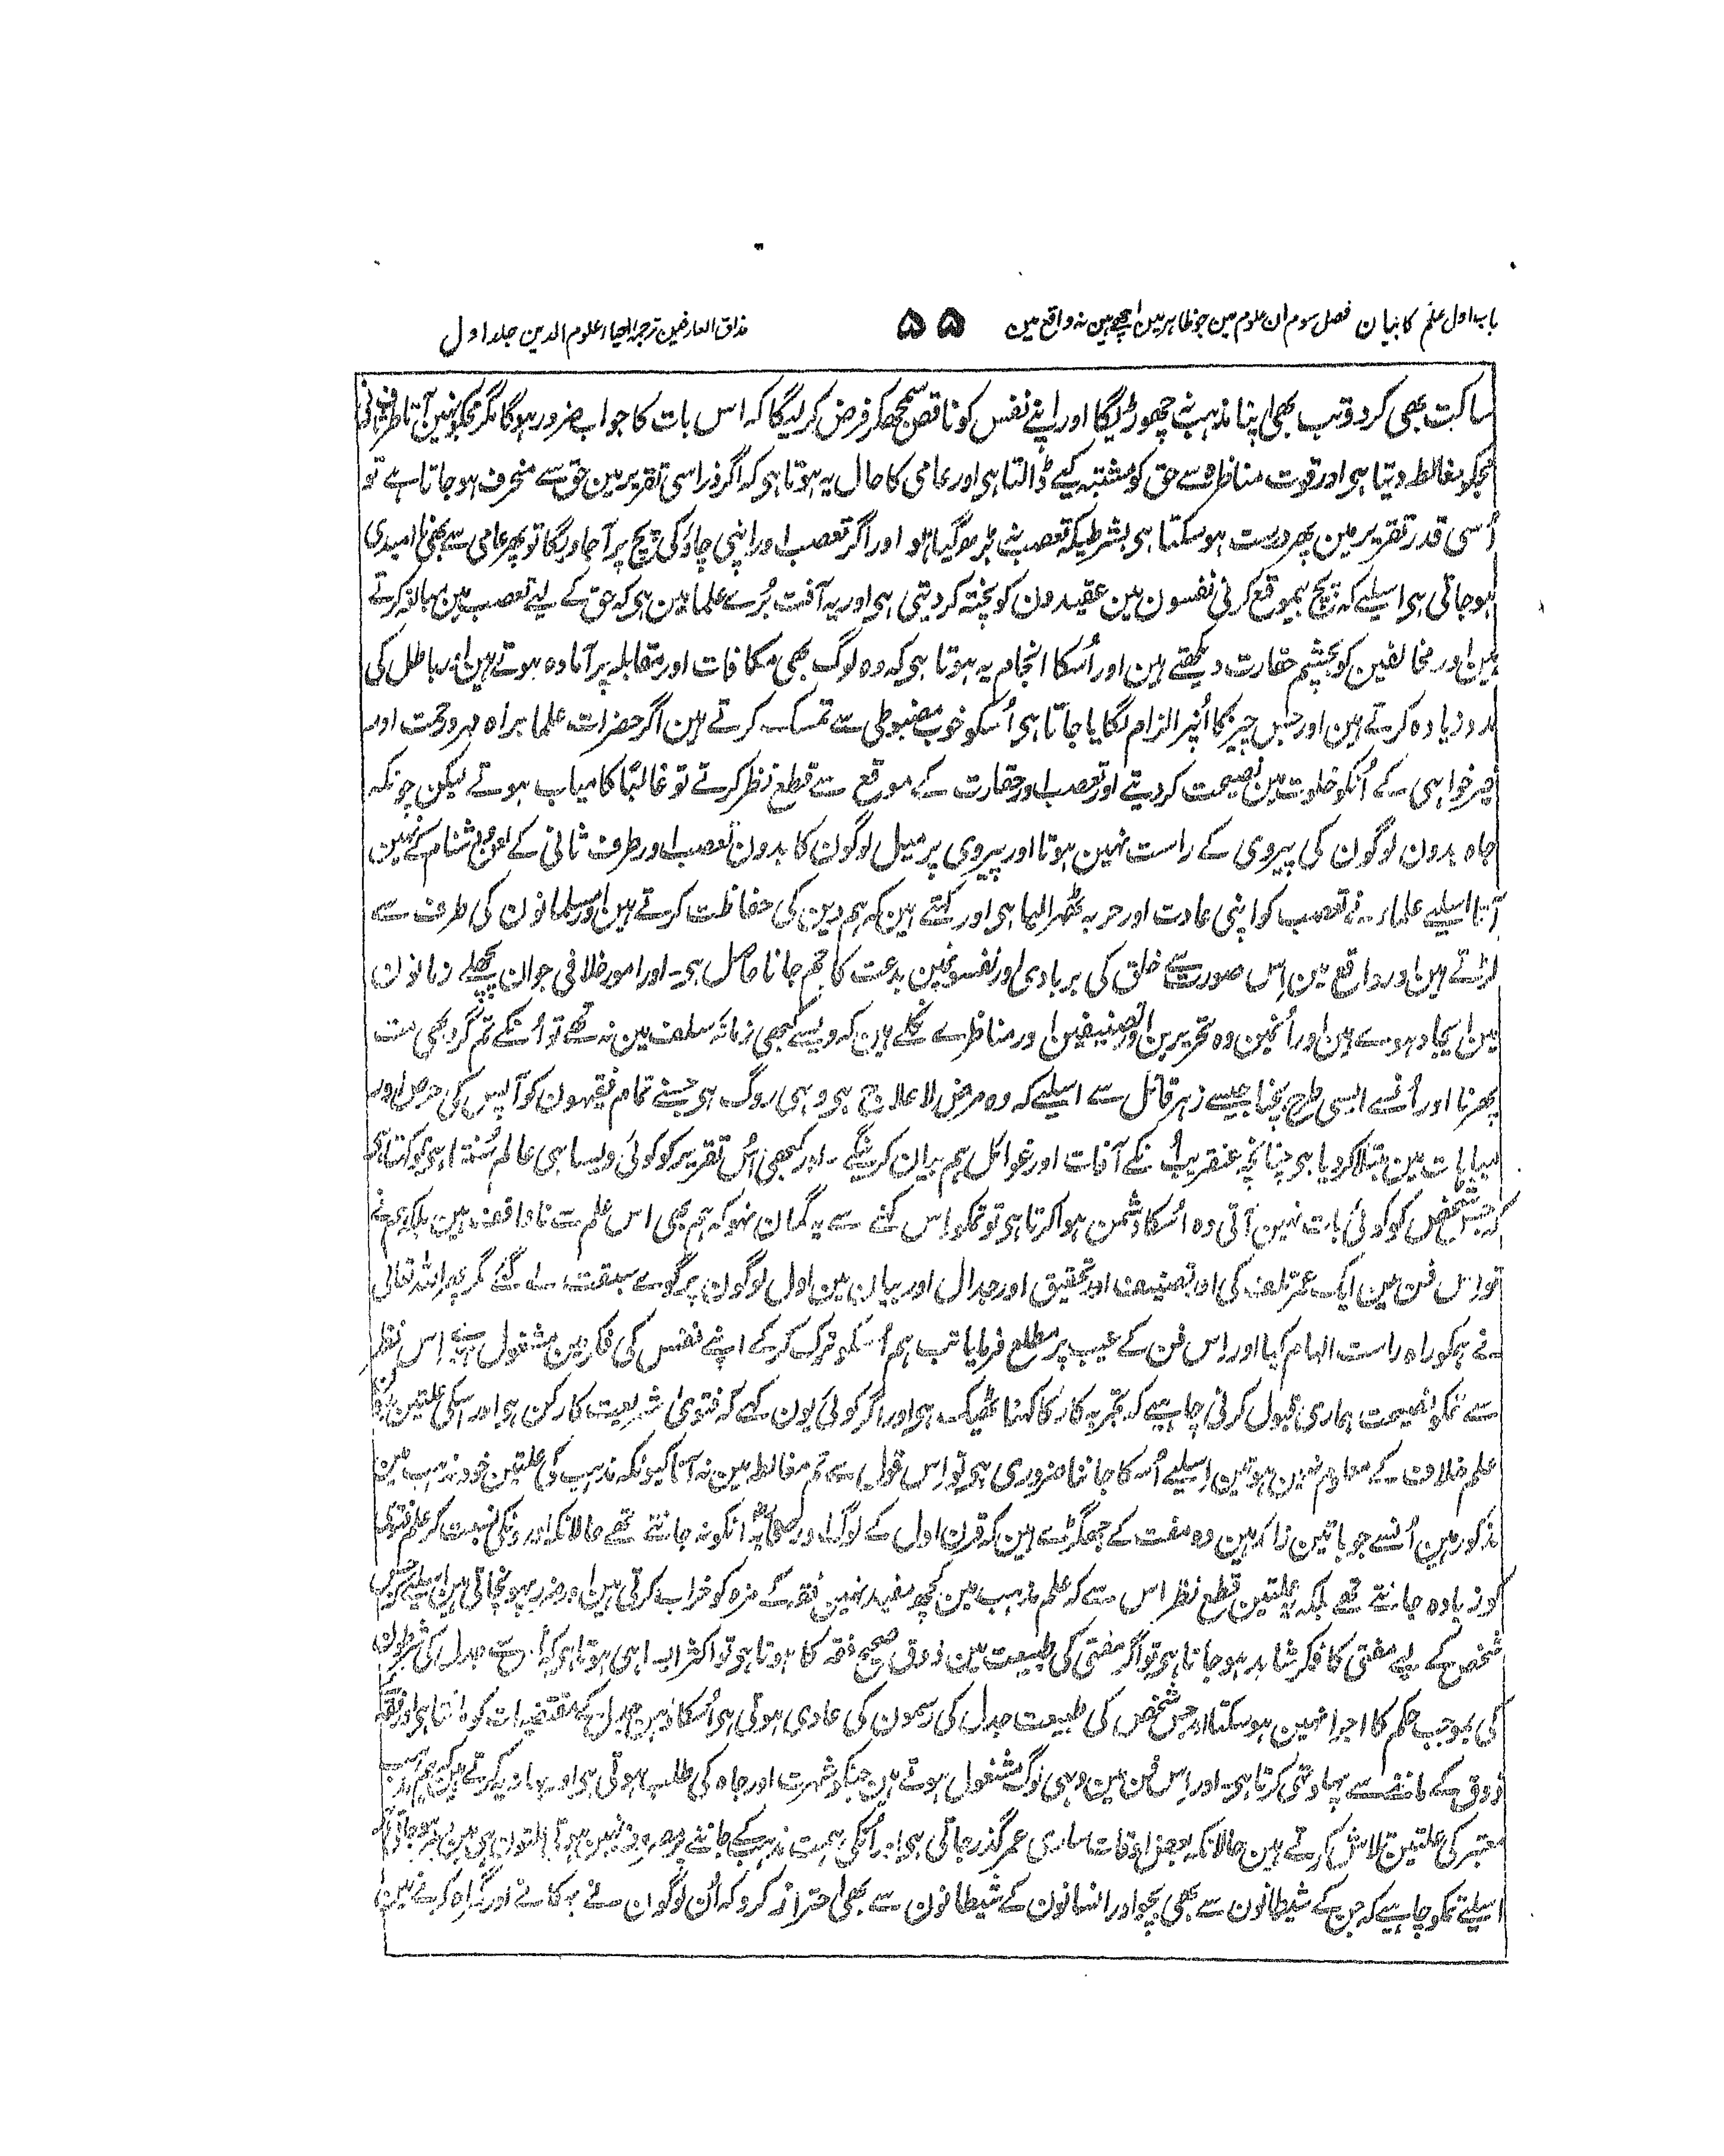 باب اول علم کا بیان فصل سوم ان علوم مین جو ظاہر مین اچھے ہین نہ واقع مین ۵۵ مذاق العارفین ترجمہ احیاء علوم الدین جلد اول
ساکت بھی کردو تب بھی اپنا مذہب نہ چھوڑیگا اور اپنے نفس کو ناقص سمجھکر فرض کرلیگا کہ اس بات کا جواب ضرور ہوگا مگر مجکو نہین آتا طرف ثانی
مجکو مغالطہ دیتا ہی اور قوت مناظرہ سے حق کو مشتبہ کیے ڈالتا ہی اور عامی کا حال یہ ہوتا ہی کہ اگر ذرا سی تقریر مین حق سے منحرف ہوجاتا ہے تو
اُسی قدر تقریر مین پھر درست ہوسکتا ہی بشرطیکہ تعصب نہ بڑھ گیا ہو اور اگر تعصب اور اپنی چاؤ کی پچ پر آجاویگا تو پھر عامی سے بھی نا امیدی
ہوجاتی ہی اسلیے کہ پچ بیموقع کرنی نفسون مین عقیدون کو پختہ کردیتی ہی اور یہ آفت بُرے علما مین ہی کہ حق کے لیے تعصب مین مبالغہ کرتے
ہین اور مخالفین کو بچشم حقارت دیکھتے ہین اور اُسکا انجام یہ ہوتا ہی کہ وہ لوگ بھی مکافات اور مقابلہ پر آمادہ ہوتے ہین اور باطل کی
مدد زیادہ کرتے ہین اور جس چیز کا اُنپر الزام لگایا جاتا ہی اُسکو خوب مضبوطی سے تمسک کرتے ہین اگر حضرات علما براہ مہر و رحمت اور
خیرخواہی کے اُنکو خلوت مین نصیحت کردیتے اور تعصب اور حقارت کے موقع سے قطع نظر کرتے تو غالبًا کامیاب ہوتے لیکن چونکہ
جاہ بدون لوگون کی پیروی کے راست نہین ہوتا اور پیروی پر میل لوگون کا بدون تعصب اور طرف ثانی کے لعن و دشنام کے نہین
آتا اسلیے علماء نے تعصب کو اپنی عادت اور حربہ ٹھہرا لیا ہی اور کہتے ہین کہ ہم دین کی حفاظت کرتے ہین اور مسلمانون کی طرف سے
لڑتے ہین اور واقع مین اِس صورت سے خلق کی بربادی اور نفسونمین بدعت کا جم جانا حاصل ہی۔ اور امور خلافی جو ان پچھلے زمانون
مین ایجاد ہوے ہین اور اُنمین وہ تحریرین اور تصنیفین اور مناظرے نکلے ہین کہ ویسے کبھی زمانۂ سلف مین نہ تھے تو اُنکے تم گرد بھی مت
پھرنا اور اُنسے ایسی طرح بچنا جیسے زہر قاتل سے اسلیے کہ وہ مرض لا علاج ہی وہی روگ ہی جسنے تمام فقیہون کو آپس کی حرص اور
مباہات مین مبتلا کردیا ہی چنانچہ عنقریب اُنکے آفات اور غوائل ہم بیان کرینگے ۔ اور کبھی اُس تقریر کو کوئی ویسا ہی عالم سُنتا ہی تو کہتا ہی
کہ جس شخص کو کوئی بات نہین آتی وہ اُسکا دشمن ہوا کرتا ہی تو تمکو اِس کہنے سے یہ گمان نہو کہ ہم بھی اس علم سے ناواقف ہین بلکہ ہم نے
تو اِس فن مین ایک عمر تلف کی اور تصنیف اور تحقیق اور جدال اور بیان مین اول لوگون پر گوے سبقت لے گئے مگر پھر اللہ تعالی
نے ہمکو راہ راست الہام کیا اور اِس فن کے عیب پر مطلع فرمایا تب ہم اُسکو ترک کرکے اپنے نفس کی فکر مین مشغول ہوئے اِس نظر
سے تمکو نصیحت ہماری قبول کرنی چاہیے کہ تجربہ کار کا کہنا ٹھیک ہی اور اگر کوئی یون کہے کہ فتویٰ شریعت کا رکن ہی اور اسکی علتین بدون
علم خلاف کے معلوم نہین ہوتین اسلیے اُسکا جاننا ضروری ہی تو اِس قول سے تم مغالطہ مین نہ آنا کیونکہ مذہب کی علتین خود مذہب مین
مذکور ہین اُنسے جو باتین زائد ہین وہ مفت کے جھگڑے ہین کہ قرن اول کے لوگ اور صحابہؓ انکو نہ جانتے تھے حالانکہ اورونکی نسبت کر علم فتوی
کو زیادہ جانتے تھے بلکہ یہ علتین قطع نظر اس سے کہ علم مذہب مین کچھ مفید نہین فقہ کے مزہ کو خراب کرتی ہین اور ضرر پہونچاتی ہین اسلیے کہ جس
شخص کے لیے مفتی کا فکر شاہد ہوجاتا ہی تو اگر مفتی کی طبیعت مین ذوق صحیح فقہ کا ہوتا ہو تو اکثر ایسا ہی ہوتا ہی کہ جدل کی شرطون
کی بموجب حکم کا اجرا نہین ہوسکتا اور جس شخص کی طبیعت جدل کی رسمون کی عادی ہوتی ہی اُسکا ذہن جدل کے مقتضیات کو مانتا ہی اور فقہ
ذوق کے ماننے سے پہلوتہی کرتا ہی۔ اور اِس فن مین وہی لوگ مشغول ہوتے ہین جنکو شہرت اور جاہ کی طلب ہوتی ہی اور بہانہ یہ کرتے ہین کہ ہم مذہب
معتبر کی علتین تلاش کرتے ہین حالانکہ بعض اوقات ساری عمر گذر جاتی ہی اور اُنکی ہمت مذہب کے جاننے پر مصروف نہین ہوتی علتون ہی مین بسر ہوجاتی ہی
اسلیے تمکو چاہیے کہ جن کے شیطانون سے بھی بچو اور انسانون کے شیطانون سے بھی احتراز کرو کہ اُن لوگون نے بہکانے اور گمراہ کرنے مین